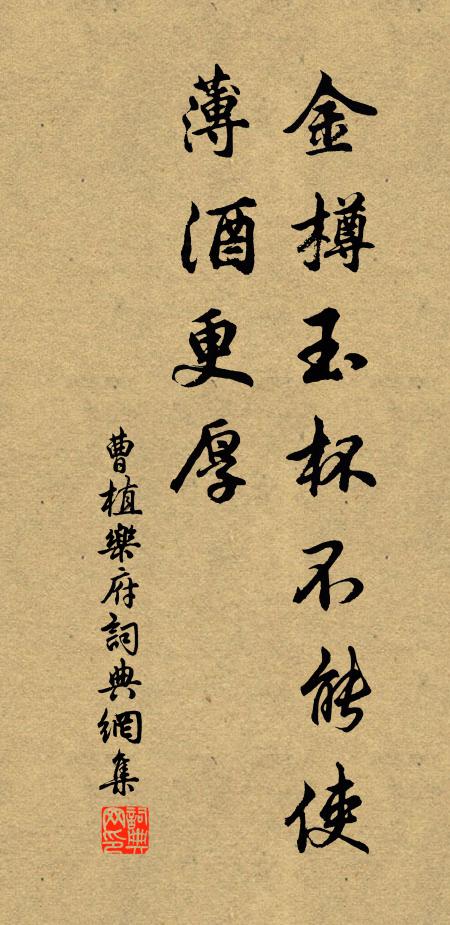 金樽玉杯不能使
薄酒更厚
曹植樂府詞典網集
詞典网印